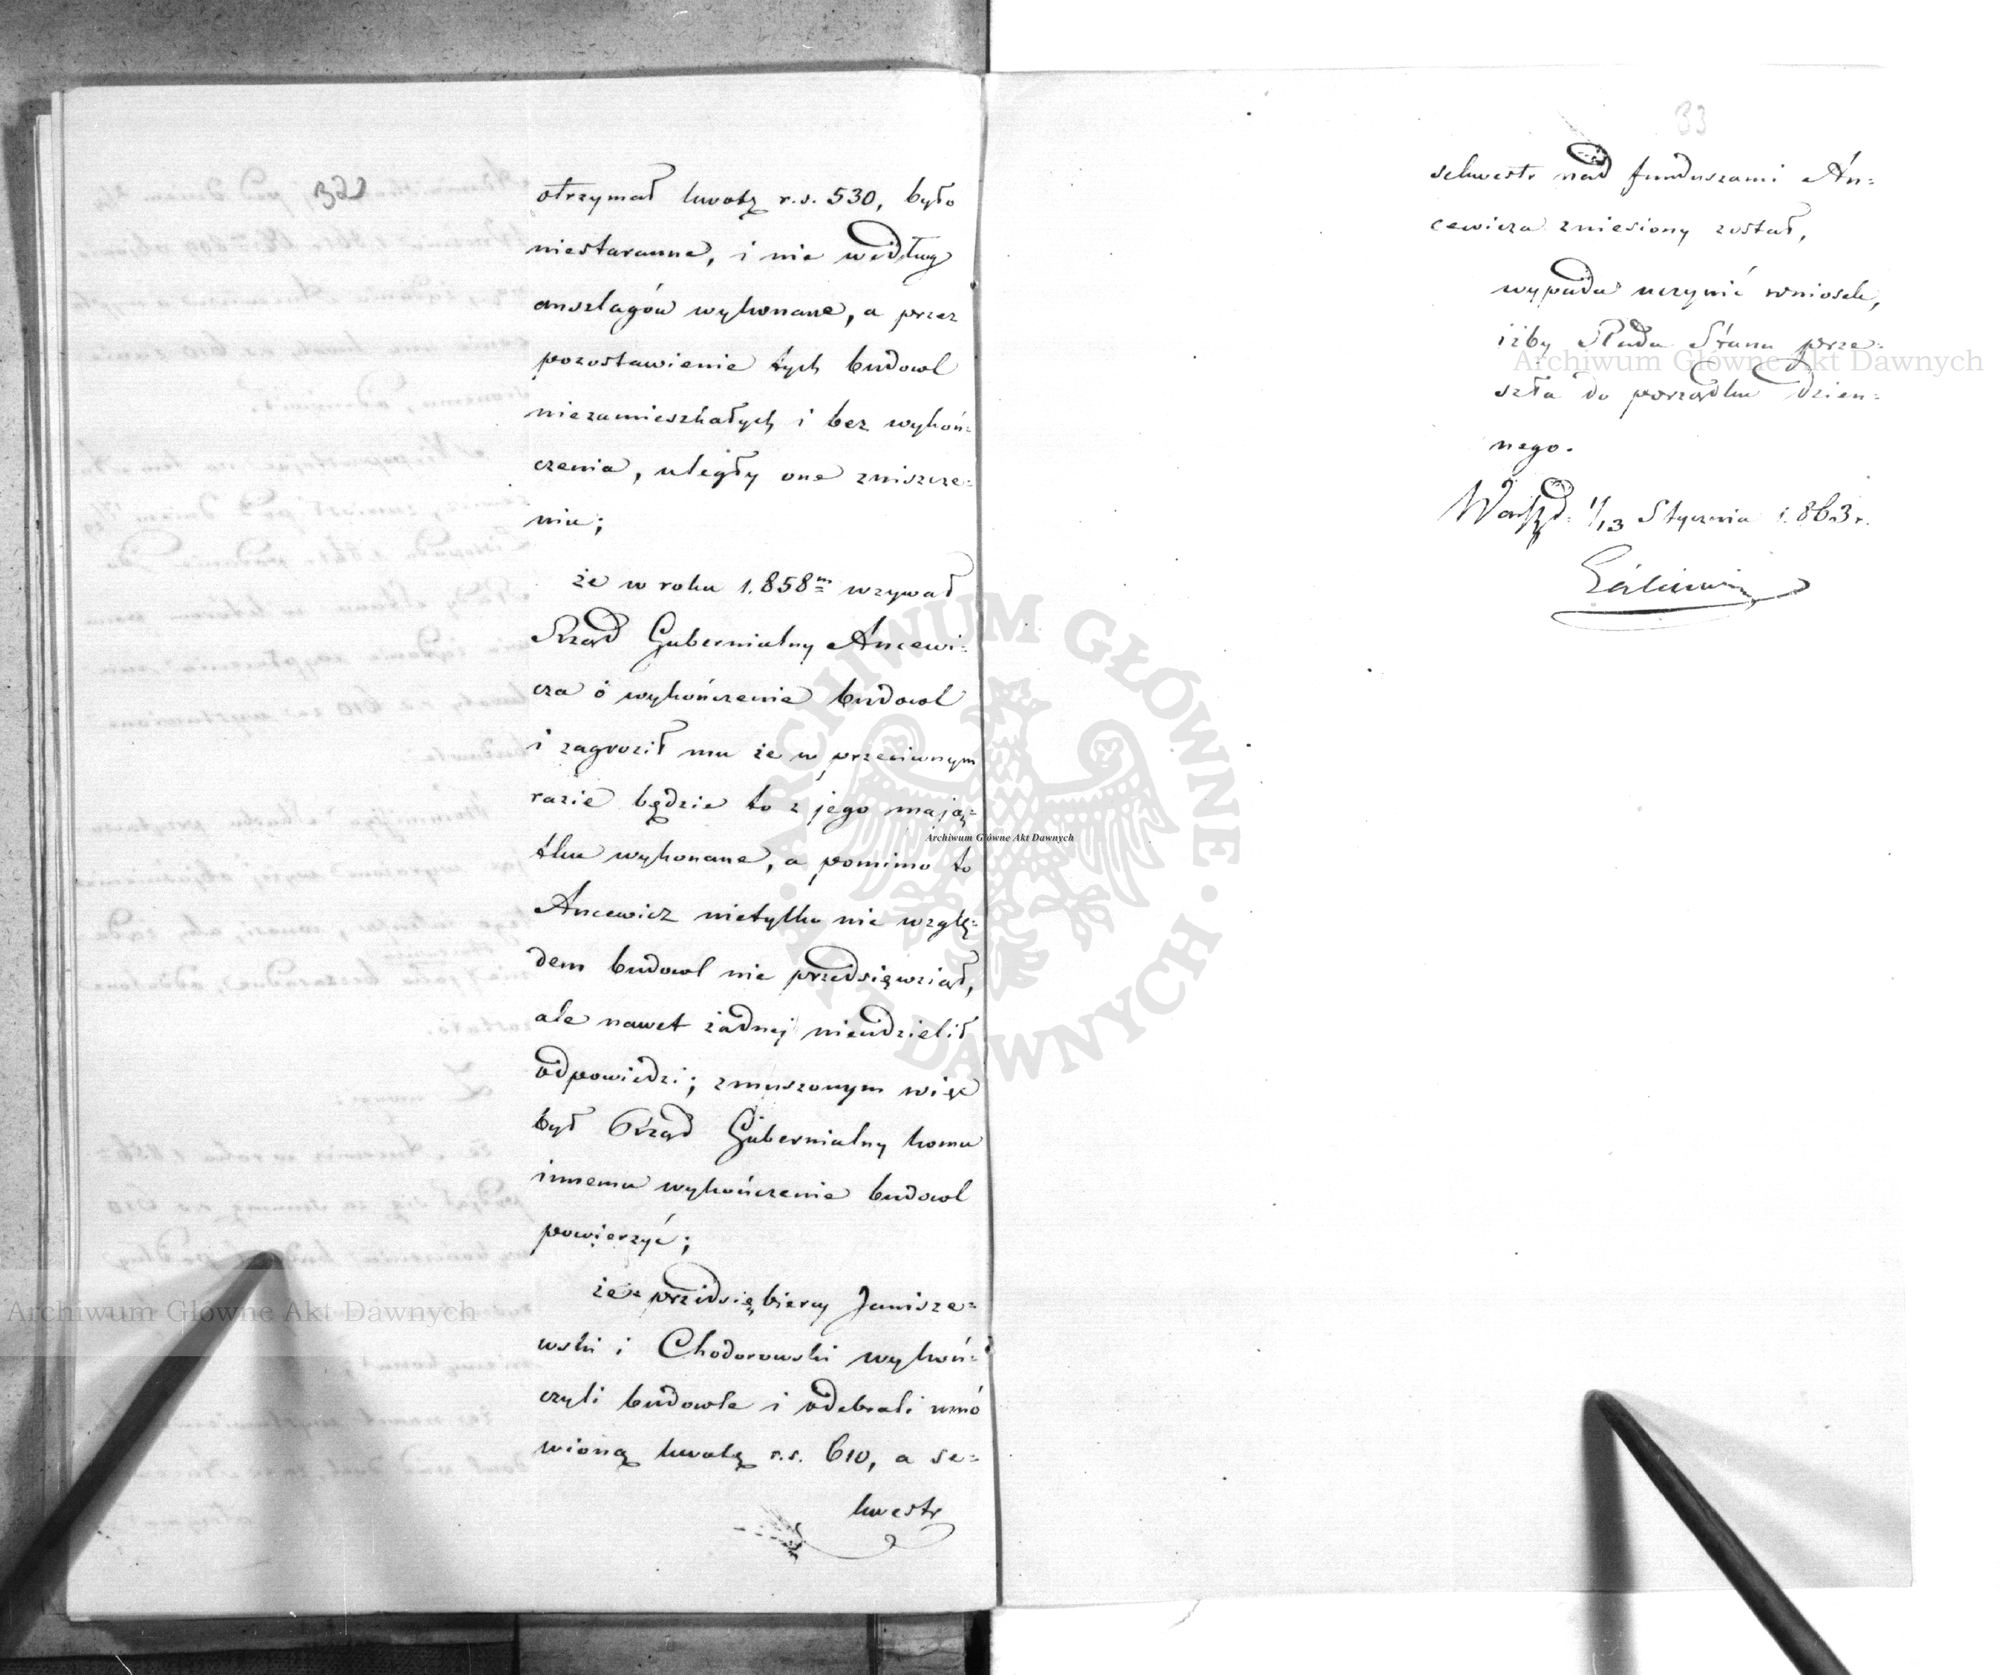 32
otrzymał kwotę r.s. 530, było
niestaranne, i nie według
anszlagów wykonane, a przez
pozostawienie tych budowl
niezamieszkałych i bez wykoń=
czenia, uległy one zniszcze=
niu;
że w roku 1.858m wzywał
Rząd Gubernialny Ancewi=
cza o wykończenie budowl
i zagroził mu że w przeciwnym
razie będzie to z jego mają=
tku wykonane, a pomimo to
Ancewicz nietylko nic wzglę=
dem budowl nie przedsięwziął,
ale nawet żadnej nieudzielił
odpowiedzi; zmuszonym więc
był Rząd Gubernialny komu
innemu wykończenie budowl
powierzyć;
że przedsiębiercy Janisze=
wski i Chodorowski wykoń=
czyli budowle i odebrali umó
wioną kwotę r.s. 610, a se=
kwestr
33
sekwestr nad funduszami An=
cewicza zniesiony został,
wypada uczynić wniosek,
iżby Rada Stanu prze=
szła do porządku dzien=
nego.
Warsz. d. 1/13 Stycznia 1.863 r.
ARCHIWUM GŁÓWNE AKT DAWNYCH
Archiwum Główne Akt Dawnych
Archiwum Główne Akt Dawnych
Archiwum Główne Akt Dawnych